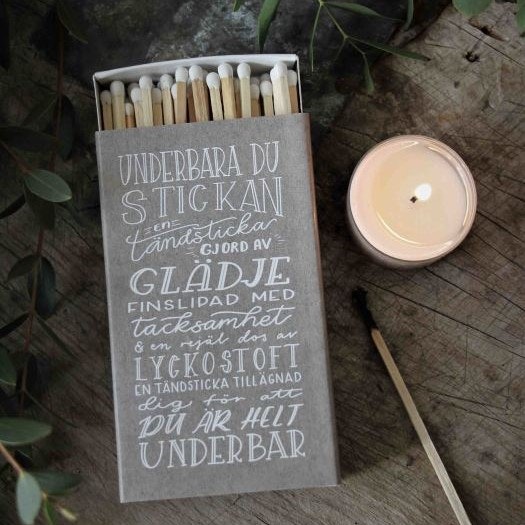 UNDERBARA DU
STICKAN
EN
tändsticka
GJORD AV
GLÄDJE
FINSLIPAD MED
tacksamhet
& en rejäl dos av
LYCKOSTOFT
EN TÄNDSTICKA TILLÄGNAD
dig för att
DU ÄR HELT
UNDERBAR